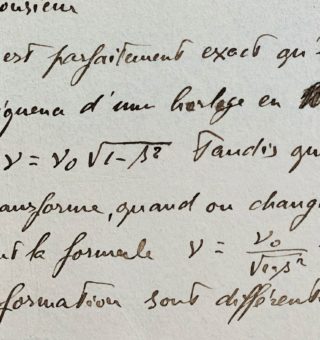 onsieur
est parfaitement exact qu'
quence d'une horloge en
ν = ν₀ √1-β² Tandis qu
ansforme, quand on chang
nt la formule ν = ν₀/√1-β²
formation sont différent